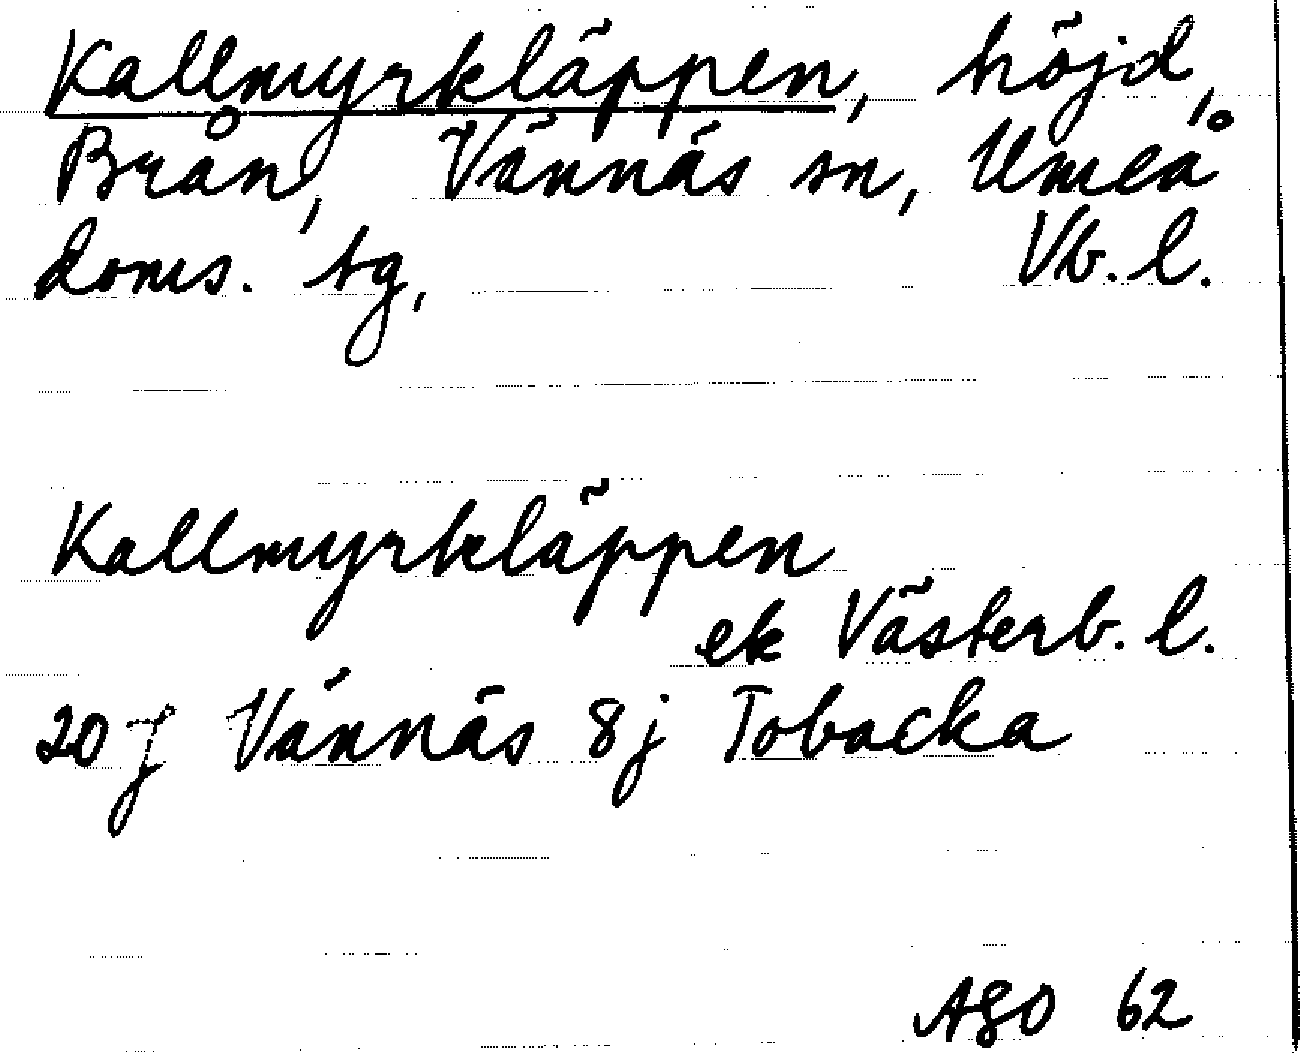 Kallmyrkläppen, höjd,
Brån, Vännäs sn, Umeå
doms. tg, Vb. l.
Kallmyrkläppen
ek Västerb. l.
20 J Vännäs 8j Tobacka
AGO 62